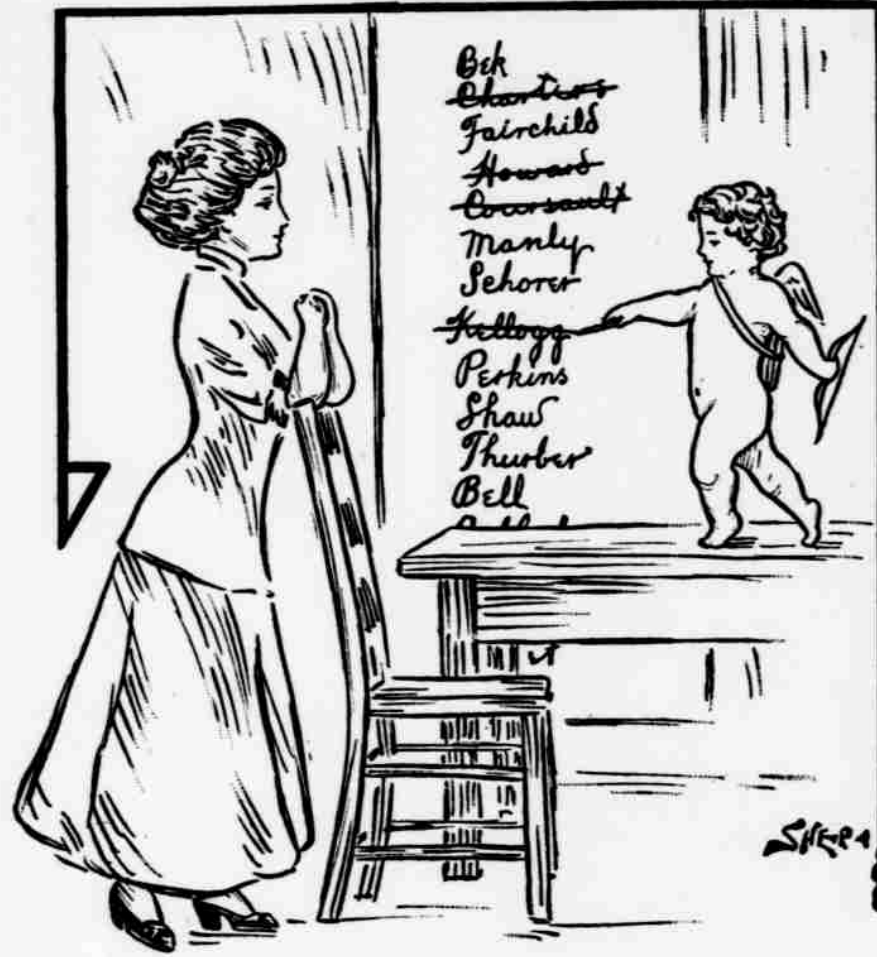 Bek
Charters
Fairchild
Howard
Coursault
Manly
Schorer
Kellogg
Perkins
Shaw
Thurber
Bell